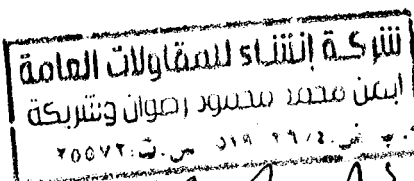 شركة إنشاء للمقاولات العامة
ايمن محمد محمود رضوان وشريكة
س.ت: ٢٥٥٧٢